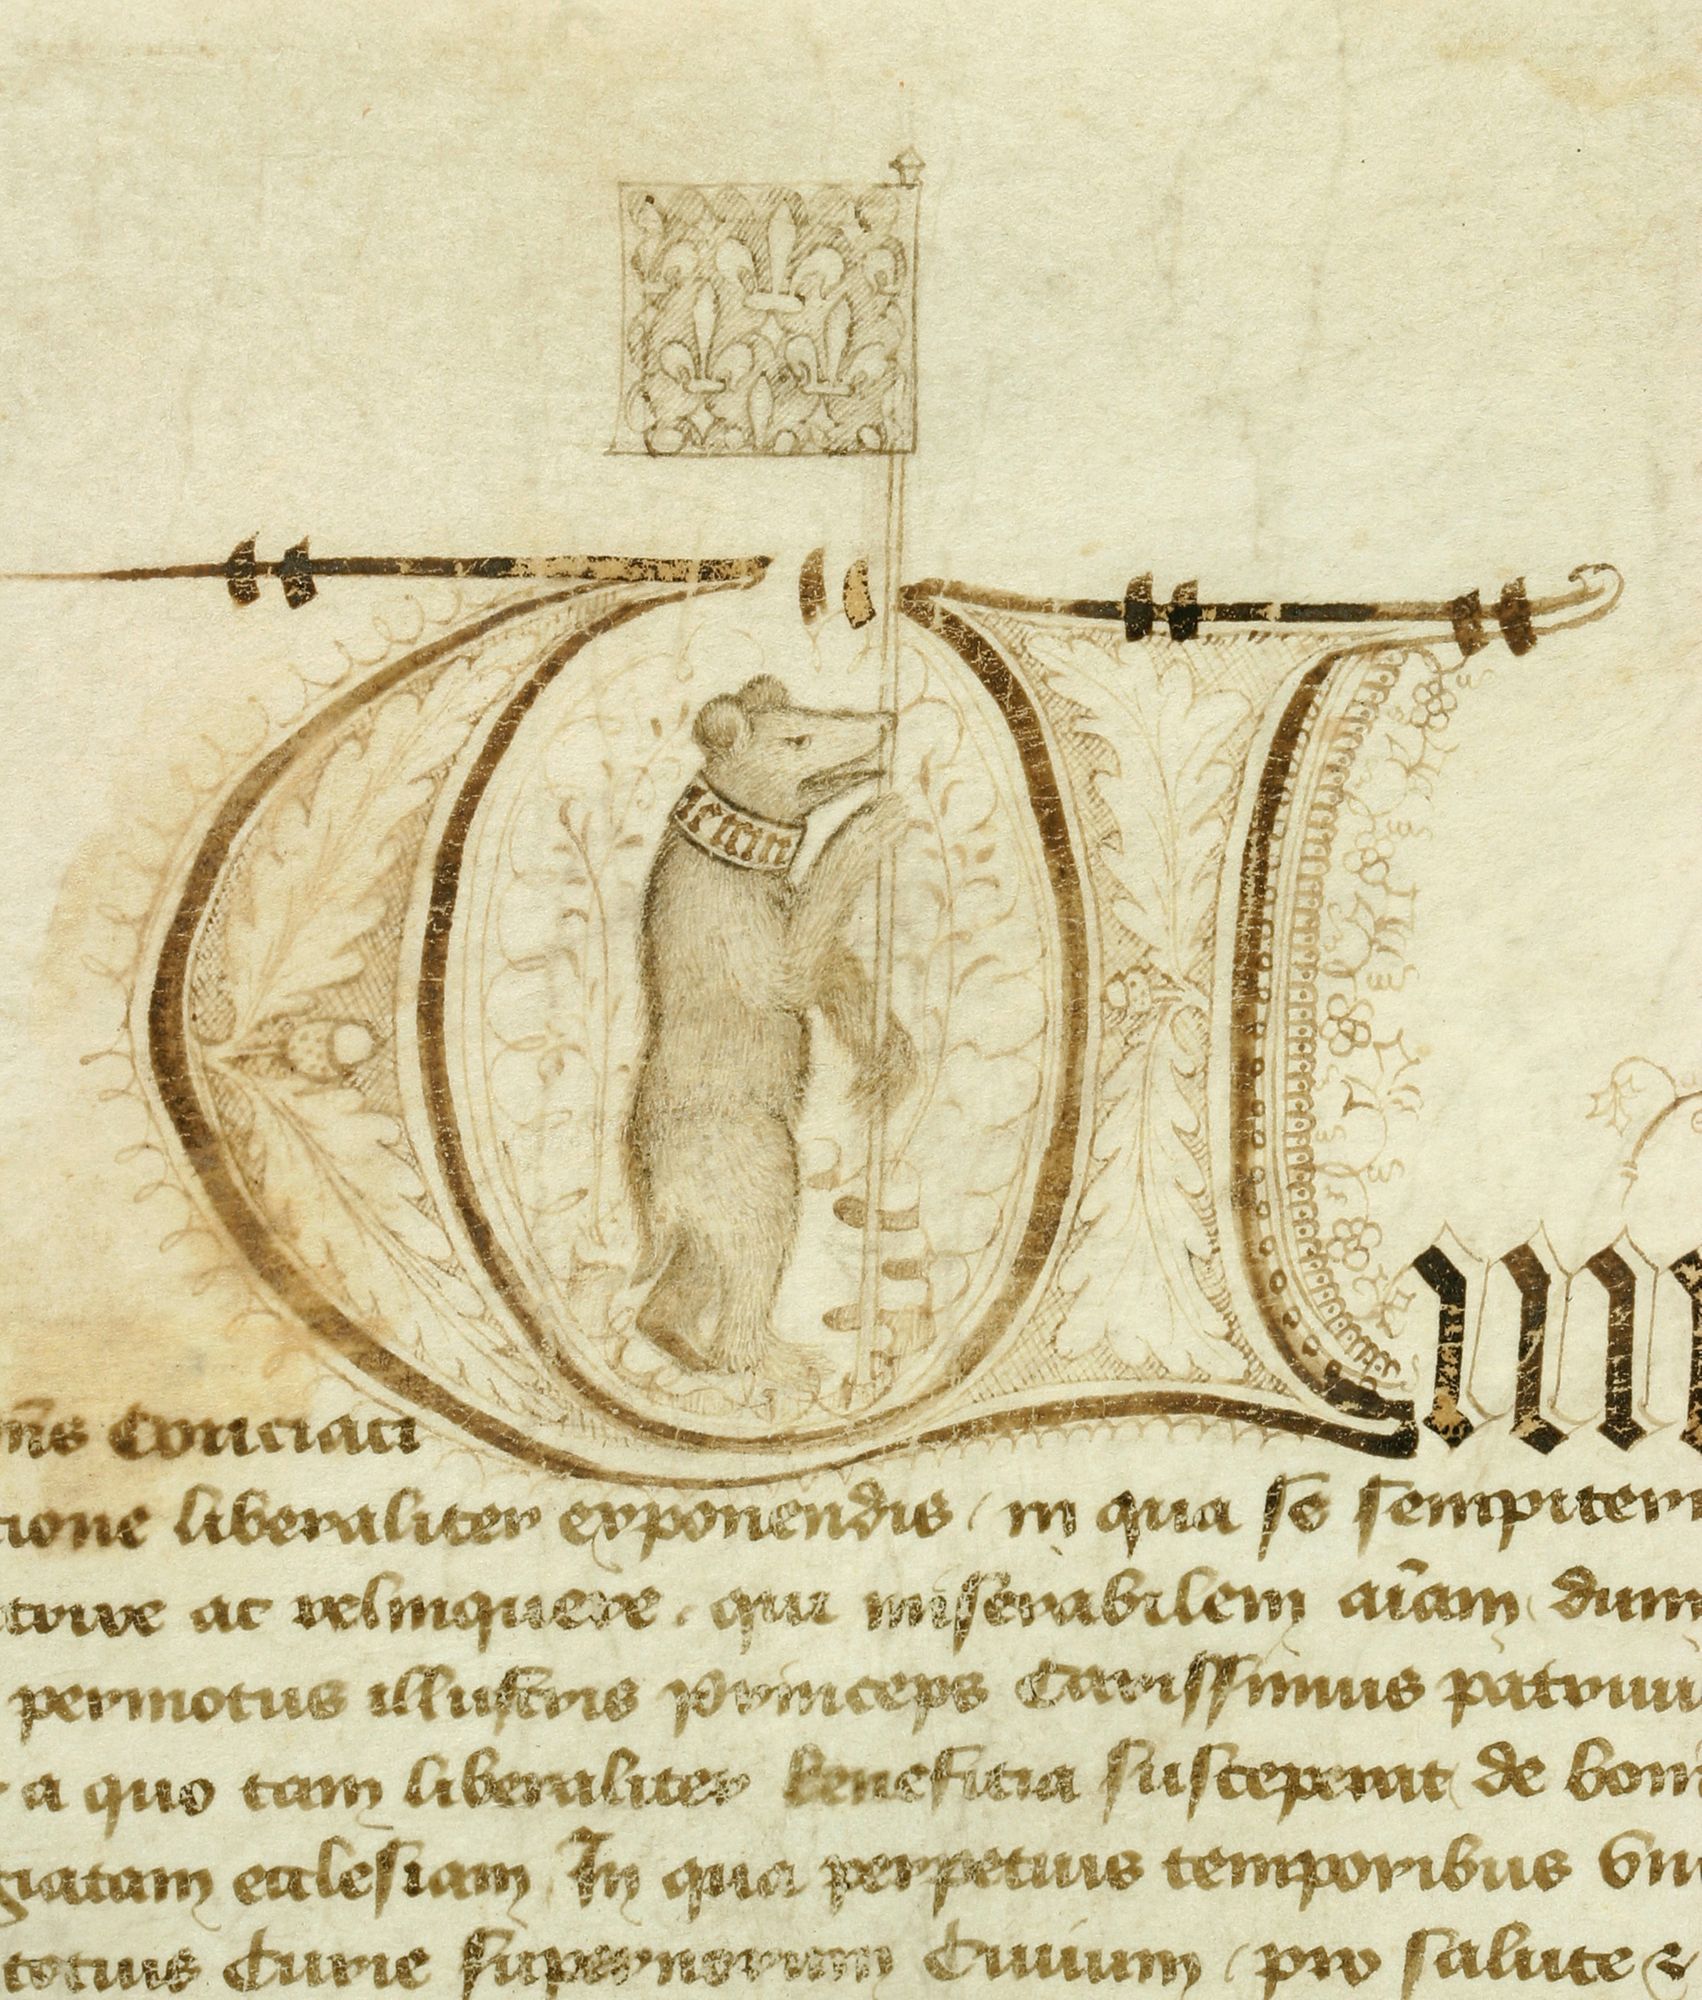 m̄s Conciaci
cione liberaliter exponendis / in qua se sempitern
ac relinquere . qui miserabilem aīam dum
permotus illustris Princeps Carissimus patruu
a quo tam liberaliter benefitia susceperat de bon
giatam ecclesiam In qua perpetuis temporibus
totius Curie supernorum Civium / pro salute